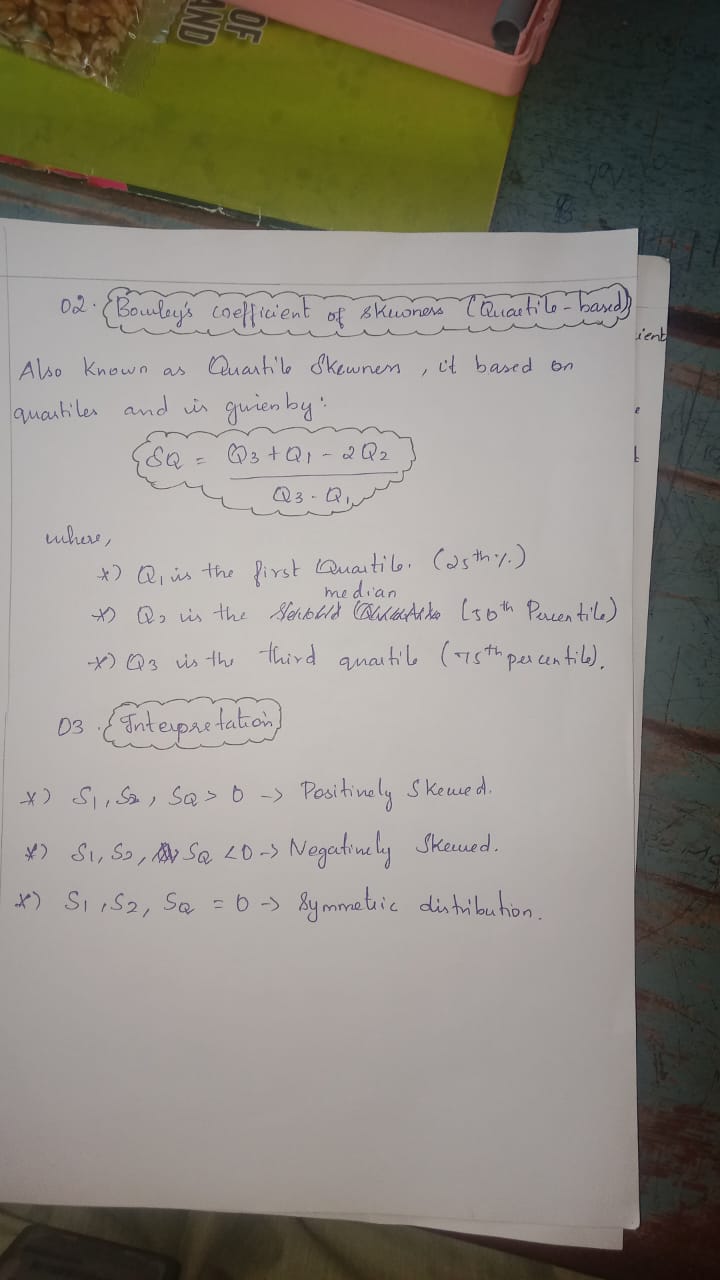 OF
AND
02. Bowley's coefficient of skewness (Quartile-based)
ient
Also known as Quartile Skewness, it based on
quartiles and is given by:
SQ = Q3 + Q1 - 2Q2
Q3 - Q1
where,
*) Q1 is the first Quartile. (25th %.)
median
*) Q2 is the (50th Percentile)
*) Q3 is the third quartile (75th percentile).
03. Interpretation
*) S1, S2, SQ > 0 -> Positively Skewed.
*) S1, S2, SQ < 0 -> Negatively Skewed.
*) S1, S2, SQ = 0 -> Symmetric distribution.